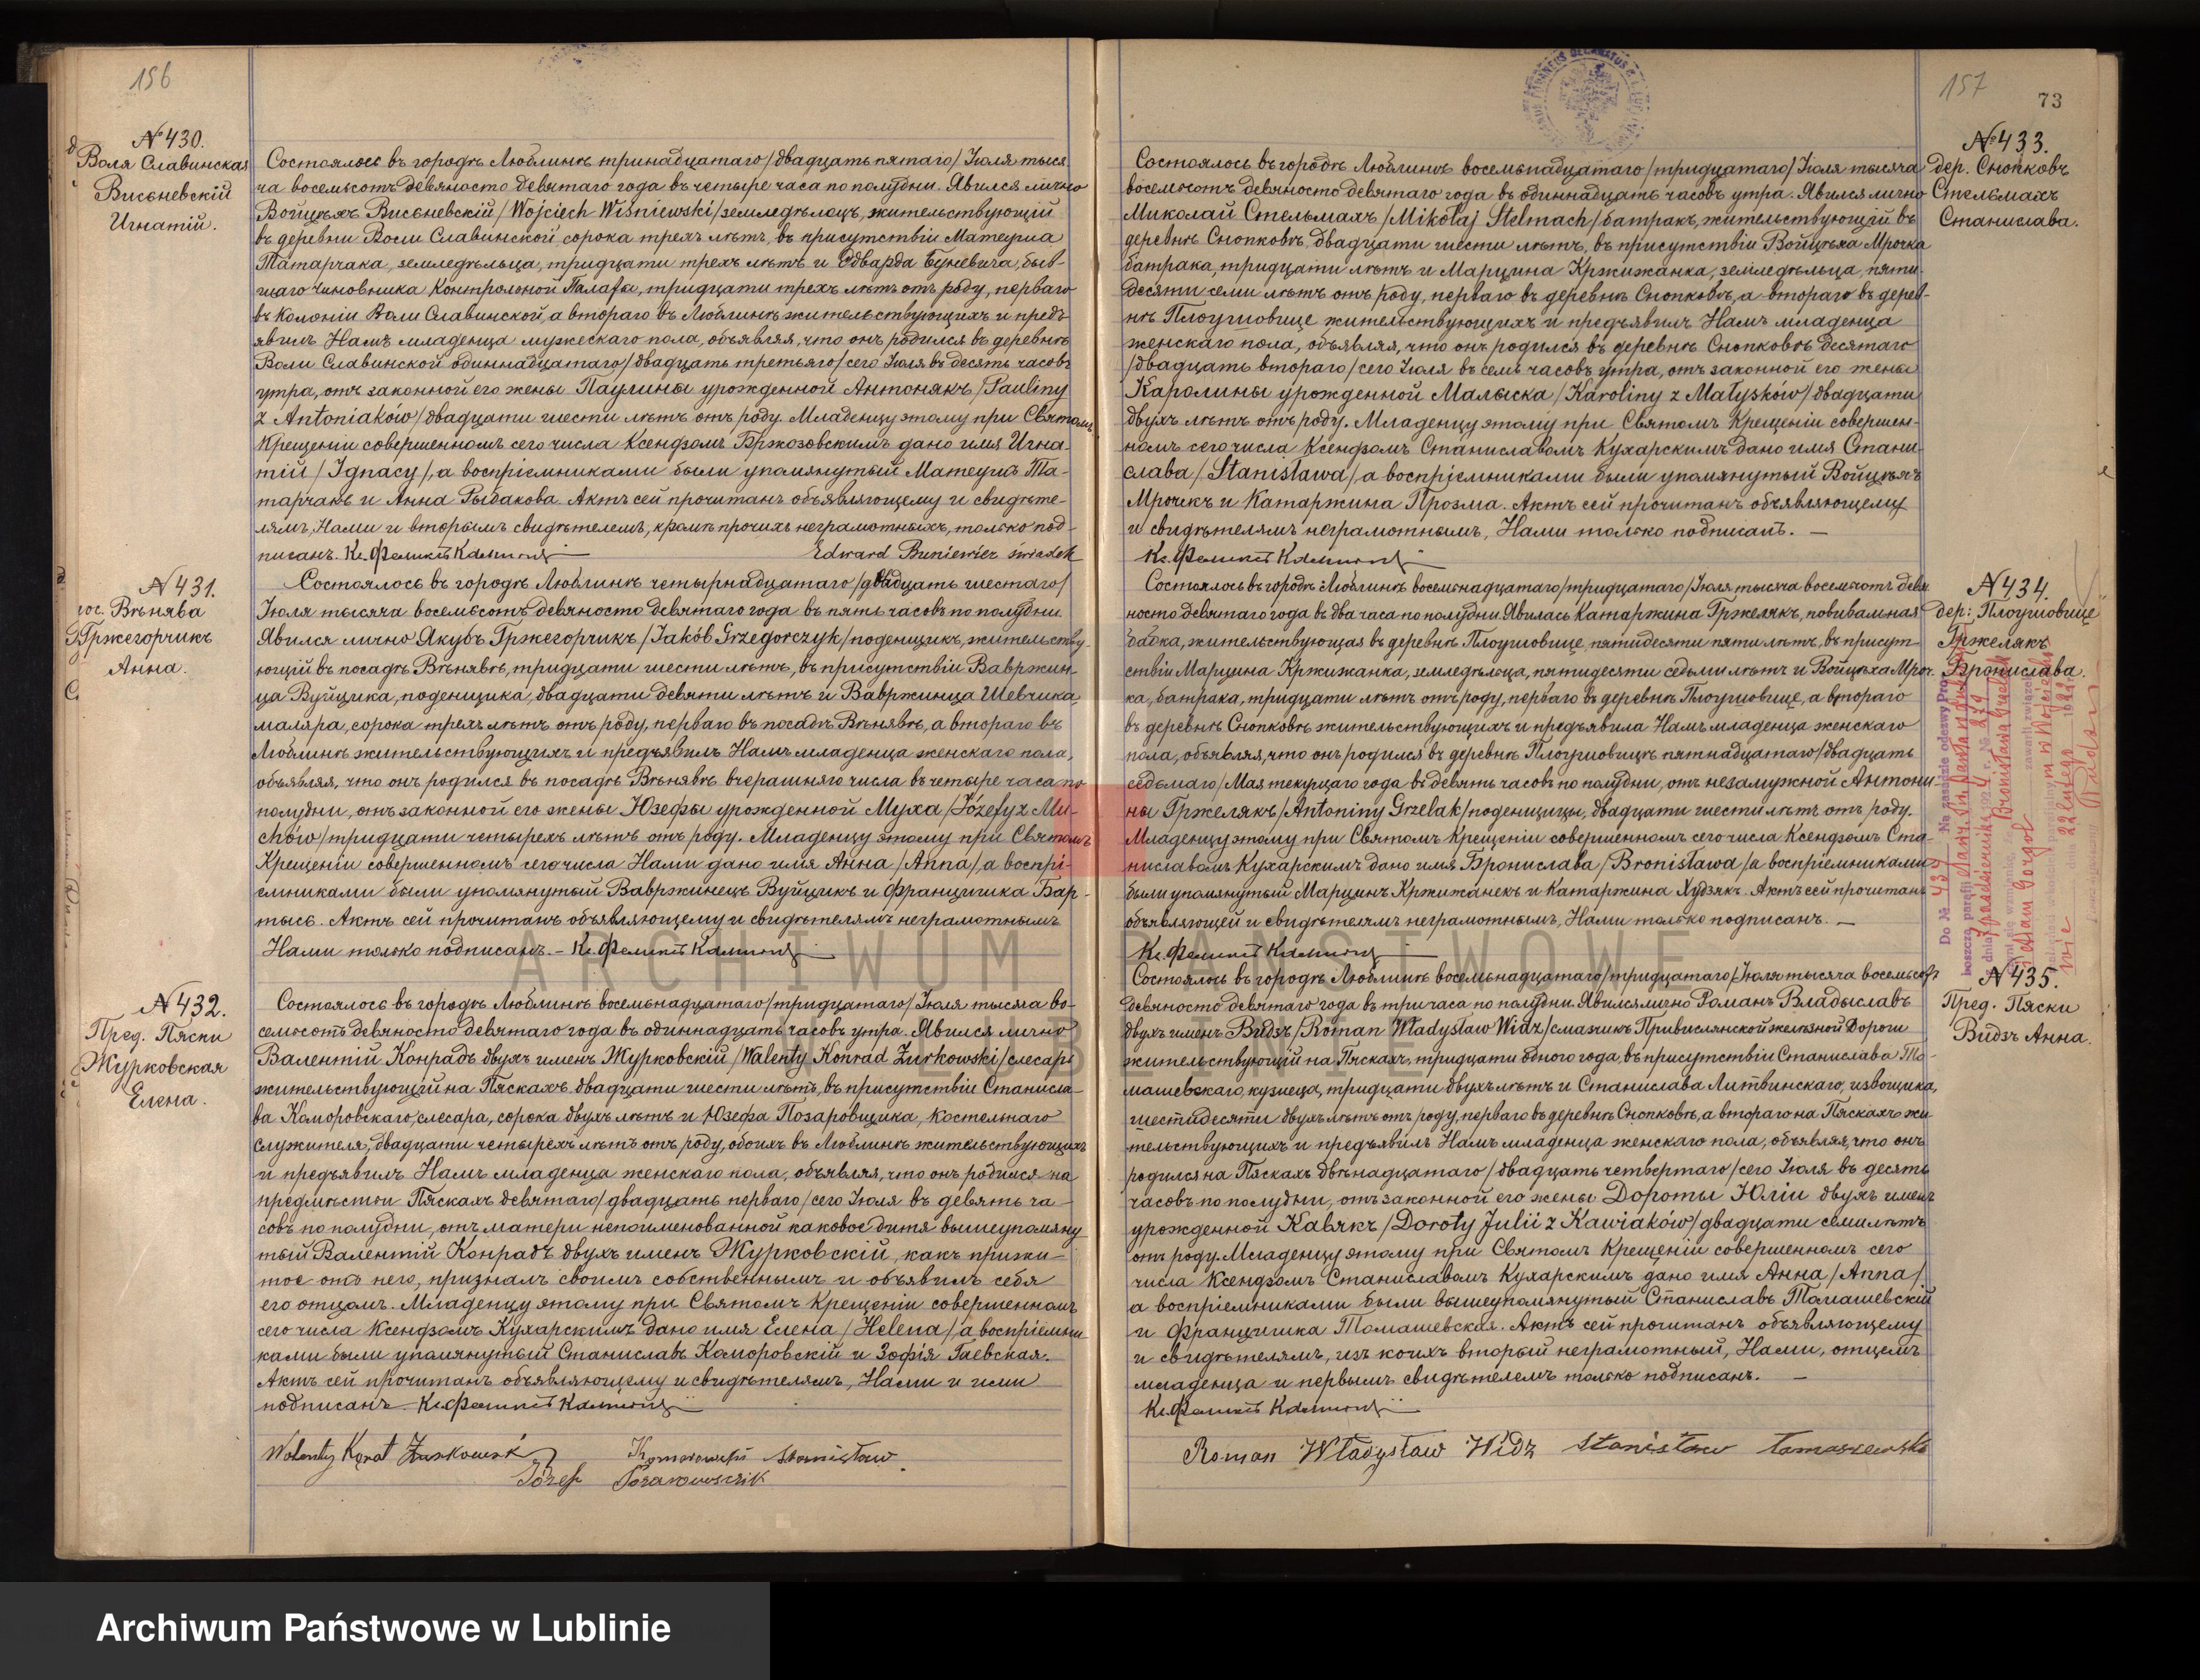 156
№ 430.
Воля Славинская
Висьневскій
Игнатій.
Состоялось въ городѣ Люблинѣ тринадцатаго /двадцать пятаго/ Іюля тыся
ча восемьсотъ девяносто девятаго года въ четыре часа по полудни. Явился лично
Войцѣхъ Висьневскій /Wojciech Wiśniewski/ земледѣлецъ, жительствующій
въ деревни Воли Славинской сорока трехъ лѣтъ, въ присутствіи Матеуша
Татарчака, земледѣльца, тридцати трехъ лѣтъ и Едварда Буневича, быв-
шаго чиновника Контрольной Палаты, тридцати трехъ лѣтъ отъ роду, перваго
въ Колоніи Воли Славинской, а втораго въ Люблинѣ жительствующихъ и предъ
явилъ Намъ младенца мужескаго пола, объявляя, что онъ родился въ деревнѣ
Воли Славинской одиннадцатаго /двадцать третьяго/ сего Іюля въ десять часовъ
утра, отъ законной его жены Паулины урожденной Антонякъ /Pauliny
z Antoniaków/ двадцати шести лѣтъ отъ роду. Младенцу этому при Святомъ
Крещеніи совершенномъ сего числа Ксендзомъ Бржозовскимъ дано имя Игна-
тій /Ignacy/, а воспріемниками были упомянутый Матеушъ Та-
тарчакъ и Анна Рыбакова. Актъ сей прочитанъ объявляющему и свидѣте-
лямъ, Нами и вторымъ свидѣтелемъ, кромѣ прочихъ неграмотныхъ, только под-
писанъ.
Edward Buniewicz świadek
№ 431.
пос. Вѣнява
Гржегорчикъ
Анна.
Состоялось въ городѣ Люблинѣ четырнадцатаго /двадцать шестаго/
Іюля тысяча восемьсотъ девяносто девятаго года въ пять часовъ по полудни.
Явился лично Якубъ Гржегорчикъ /Jakób Grzegorczyk/ поденщикъ, жительству-
ющій въ посадѣ Вѣнявѣ, тридцати шести лѣтъ, въ присутствіи Вавржин-
ца Вуйцика, поденщика, двадцати девяти лѣтъ и Вавржинца Шевчика,
маляра, сорока трехъ лѣтъ отъ роду, перваго въ посадѣ Вѣнявѣ, а втораго въ
Люблинѣ жительствующихъ и предъявилъ Намъ младенца женскаго пола,
объявляя, что онъ родился въ посадѣ Вѣнявѣ вчерашняго числа въ четыре часа по
полудни, отъ законной его жены Юзефы урожденной Муха /Józefy z Mu-
chów/ тридцати четырехъ лѣтъ отъ роду. Младенцу этому при Святомъ
Крещеніи совершенномъ сего числа Нами дано имя Анна /Anna/, а воспрі-
емниками были упомянутый Вавржинецъ Вуйцикъ и Францишка Бар-
тысь. Актъ сей прочитанъ объявляющему и свидѣтелямъ неграмотнымъ
Нами только подписанъ. –
№ 432.
Пред. Пяски
Журковская
Елена.
Состоялось въ городѣ Люблинѣ восемьнадцатаго /тридцатаго/ Іюля тысяча во-
семьсотъ девяносто девятаго года въ одиннадцать часовъ утра. Явился лично
Валентій Конрадъ двухъ именъ Журковскій /Walenty Konrad Żurkowski/ слесарь
жительствующій на Пяскахъ двадцати шести лѣтъ, въ присутствіи Станисла-
ва Коморовскаго, слесара, сорока двухъ лѣтъ и Юзефа Позаровщика, костельнаго
служителя, двадцати четырехъ лѣтъ отъ роду, обоихъ въ Люблинѣ жительствующихъ
и предъявилъ Намъ младенца женскаго пола, объявляя, что онъ родился на
предмѣстьи Пяскахъ девятаго /двадцать перваго/ сего Іюля въ девять ча-
совъ по полудни, отъ матери непоименованной каковое дитя вышеупомяну
тый Валентій Конрадъ двухъ именъ Журковскій, какъ прижи-
тое отъ него, призналъ своимъ собственнымъ и объявилъ себя
его отцомъ. Младенцу этому при Святомъ Крещеніи совершенномъ
сего числа Ксендзомъ Кухарскимъ дано имя Елена /Helena/, а воспріемни-
ками были упомянутый Станиславъ Коморовскій и Зофія Гаевская.
Актъ сей прочитанъ объявляющему и свидѣтелямъ, Нами и ими
подписанъ
Walenty Konrat Żurkowski
Komorowski Stanisław
Józef
157
73
№ 433.
дер. Снопковъ
Стельмахъ
Станислава.
Состоялось въ городѣ Люблинѣ восемьнадцатаго /тридцатаго/ Іюля тысяча
восемьсотъ девяносто девятаго года въ одиннадцать часовъ утра. Явился лично
Миколай Стельмахъ /Mikołaj Stelmach/ батракъ, жительствующій въ
деревнѣ Снопковѣ, двадцати шести лѣтъ, въ присутствіи Войцѣха Мрочка
батрака, тридцати лѣтъ и Марцина Кржижанка, земледѣльца, пяти-
десяти семи лѣтъ отъ роду, перваго въ деревнѣ Снопковѣ, а втораго въ дерев-
нѣ Плоушовице жительствующихъ и предъявилъ Намъ младенца
женскаго пола, объявляя, что онъ родился въ деревнѣ Снопковѣ десятаго
/двадцать втораго/ сего Іюля въ семь часовъ утра, отъ законной его жены
Каролины урожденной Малыска /Karoliny z Małysków/ двадцати
двухъ лѣтъ отъ роду. Младенцу этому при Святомъ Крещеніи совершен-
номъ сего числа Ксендзомъ Станиславомъ Кухарскимъ дано имя Стани-
слава /Stanisława/ а воспріемниками были упомянутый Войцѣхъ
Мрочекъ и Катаржина Прозма. Актъ сей прочитанъ объявляющему
и свидѣтелямъ неграмотнымъ, Нами только подписанъ. –
№ 434.
дер: Плоушовице
Гржелякъ
Бронислава.
Состоялось въ городѣ Люблинѣ восемьнадцатаго /тридцатаго/ Іюля тысяча восемьсотъ девя
носто девятаго года въ два часа по полудни. Явилась Катаржина Гржелякъ, повивальная
бабка, жительствующая въ деревнѣ Плоушовице, пятидесяти пяти лѣтъ, въ присут-
ствіи Марцина Кржижанка, земледѣльца, пятидесяти седьми лѣтъ и Войцѣха Мроч-
ка, батрака, тридцати лѣтъ отъ роду, перваго въ деревнѣ Плоушовице, а втораго
въ деревнѣ Снопковѣ жительствующихъ и предъявила Намъ младенца женскаго
пола, объявляя, что онъ родился въ деревнѣ Плоушовицѣ пятнадцатаго /двадцать
седьмаго/ Мая текущаго года въ девять часовъ по полудни, отъ незамужной Антони-
ны Гржелякъ /Antoniny Grzelak/ поденщицы, двадцати шести лѣтъ отъ роду.
Младенцу этому при Святомъ Крещеніи совершенномъ сего числа Ксендзомъ Ста-
ниславомъ Кухарскимъ дано имя Бронислава /Bronisława/ а воспріемниками
были упомянутый Марцинъ Кржижанекъ и Катаржина Худзякъ. Актъ сей прочитанъ
объявляющей и свидѣтелямъ неграмотнымъ, Нами только подписанъ. –
Do № 434 Na zasadzie odezwy Pro
boszcza parafji
października
Bronisława Grzelak
Adam Gorgol
22 lutego
№ 435.
Пред. Пяски
Видзъ Анна.
Состоялось въ городѣ Люблинѣ восемьнадцатаго /тридцатаго/ Іюля тысяча восемьсотъ
девяносто девятаго года въ три часа по полудни. Явился лично Романъ Владыславъ
двухъ именъ Видзъ /Roman Władysław Widz/ смазчикъ Привислянской желѣзной Дороги
жительствующій на Пяскахъ, тридцати одного года, въ присутствіи Станислава То-
машевскаго, кузнеца, тридцати двухъ лѣтъ и Станислава Литвинскаго, извощика,
шестидесяти двухъ лѣтъ отъ роду, перваго въ деревнѣ Снопковѣ, а втораго на Пяскахъ жи-
тельствующихъ и предъявилъ Намъ младенца женскаго пола, объявляя, что онъ
родился на Пяскахъ двѣнадцатаго /двадцать четвертаго/ сего Іюля въ десять
часовъ по полудни, отъ законной его жены Дороты Юліи двухъ именъ
урожденной Кавякъ /Doroty Julii z Kawiaków/ двадцати семи лѣтъ
отъ роду. Младенцу этому при Святомъ Крещеніи совершенномъ сего
числа Ксендзомъ Станиславомъ Кухарскимъ дано имя Анна /Anna/
а воспріемниками были вышеупомянутый Станиславъ Томашевскій
и Францишка Томашевская. Актъ сей прочитанъ объявляющему
и свидѣтелямъ, изъ коихъ вторый неграмотный, Нами, отцемъ
младенца и первымъ свидѣтелемъ только подписанъ. –
Roman Władysław Widz Stanisław Tomaszewski
ARCHIWUM PAŃSTWOWE
W LUBLINIE
Archiwum Państwowe w Lublinie